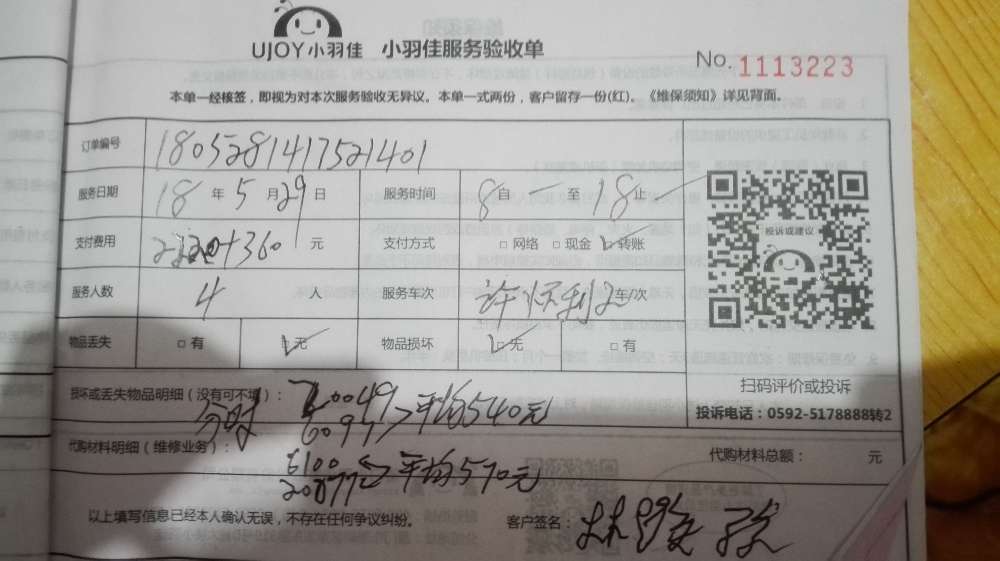 UJOY小羽佳 小羽佳服务验收单
No. 1113223
本单一经核签，即视为对本次服务验收无异议。本单一式两份，客户留存一份(红)。《维保须知》详见背面。
订单编号 180528141752 1401
服务日期 18 年 5 月 29 日 服务时间 8 自 一 至 18 止
支付费用 2220+360 元 支付方式 □网络 □现金 □转账
投诉或建议
服务人数 4 人 服务车次 许怀利 2 车/次
物品丢失 □有 □无 物品损坏 □无 □有
扫码评价或投诉
损坏或丢失物品明细（没有可不填）：
平均540元
投诉电话：0592-5178888转2
代购材料明细（维修业务）：
代购材料总额： 元
平均570元
以上填写信息已经本人确认无误，不存在任何争议纠纷。 客户签名：